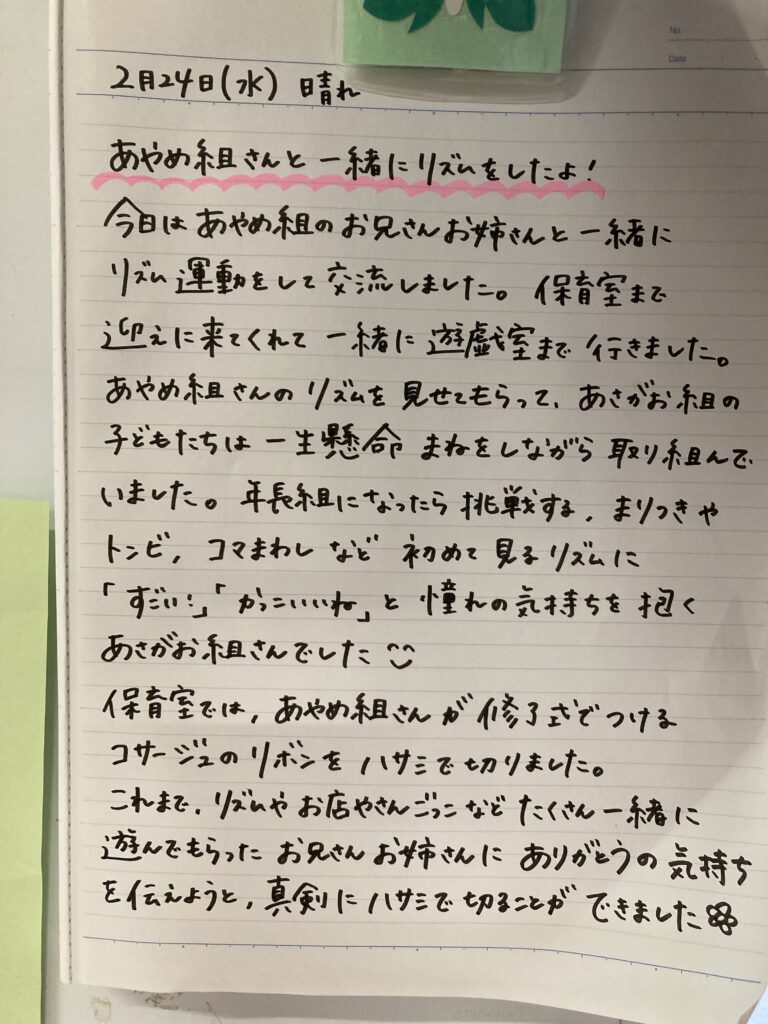 No.
Date
2月24日(水) 晴れ
あやめ組さんと一緒にリズムをしたよ!
今日はあやめ組のお兄さんお姉さんと一緒に
リズム運動をして交流しました。保育室まで
迎えに来てくれて一緒に遊戯室まで行きました。
あやめ組さんのリズムを見せてもらって、あさがお組の
子どもたちは一生懸命まねをしながら取り組んで
いました。年長組になったら挑戦する、まりつきや
トンビ、コマまわしなど初めて見るリズムに
「すごい!」「かっこいいね」と憧れの気持ちを抱く
あさがお組さんでした
保育室では、あやめ組さんが修了式でつける
コサージュのリボンをハサミで切りました。
これまで、リズムやお店やさんごっこなどたくさん一緒に
遊んでもらったお兄さんお姉さんにありがとうの気持ち
を伝えようと、真剣にハサミで切ることができました